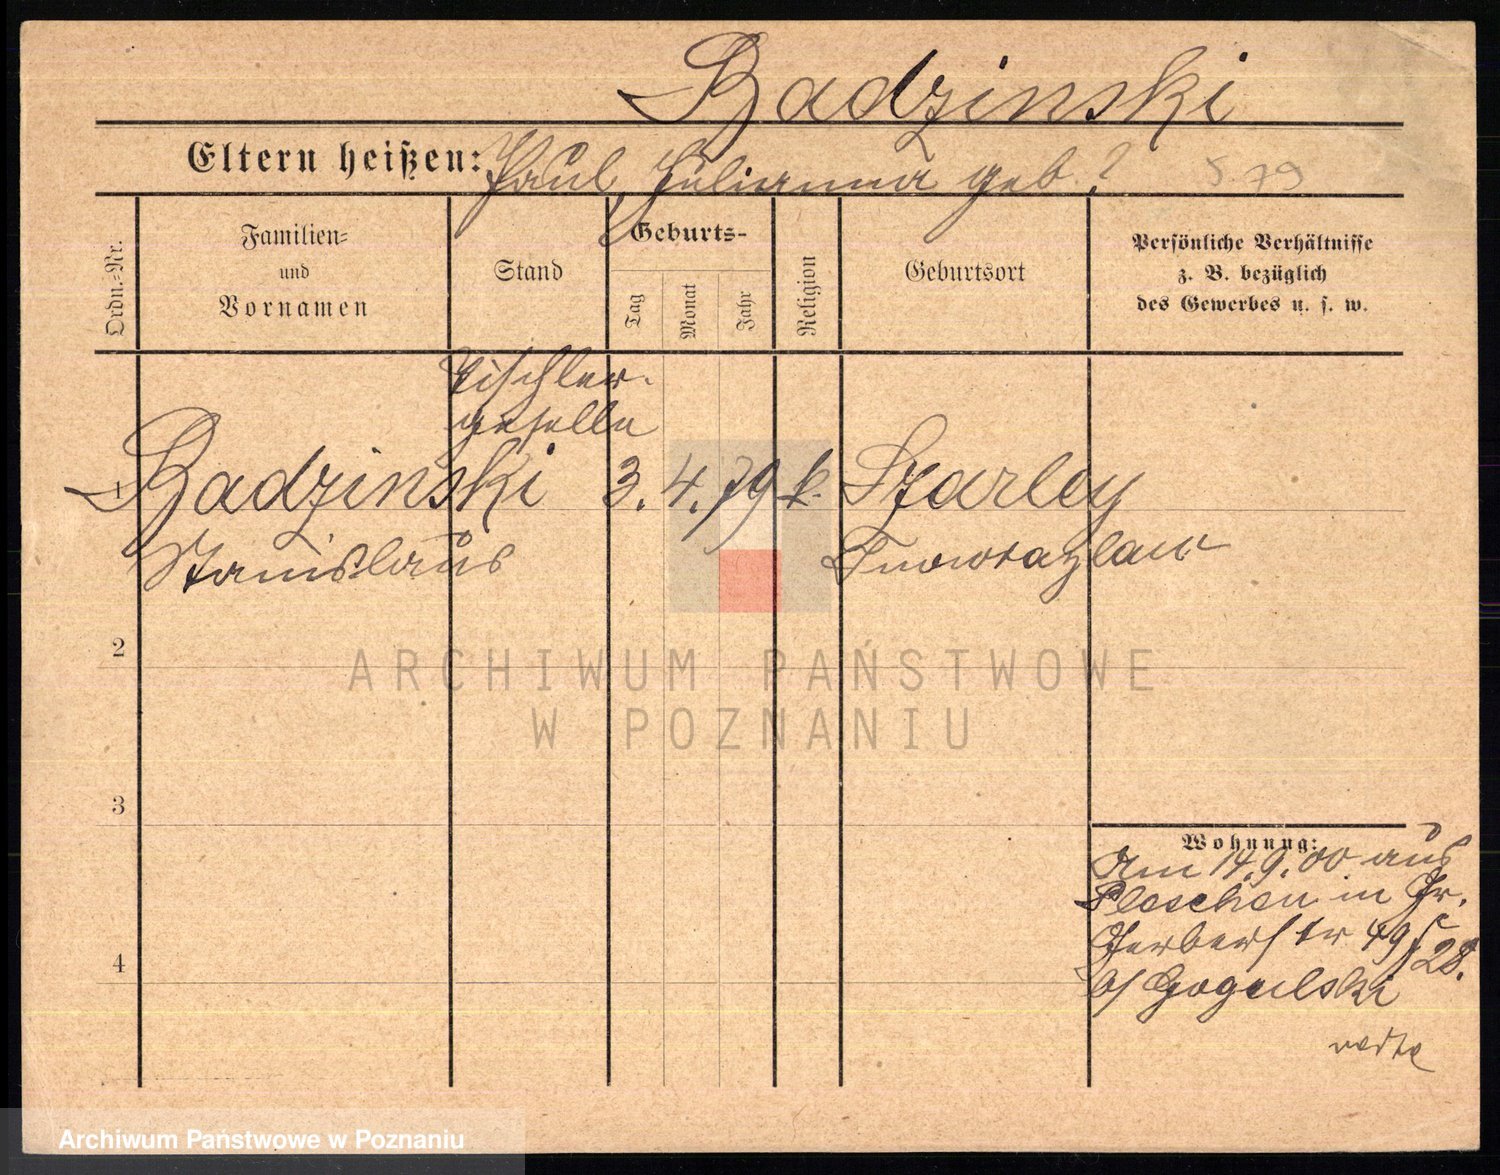 Badzinski
Eltern heißen: Paul, Julianna geb. ?
Ordn.-Nr.
Familien-
und
Vornamen
Stand
Geburts-
Tag
Monat
Jahr
Religion
Geburtsort
Persönliche Verhältnisse
z. B. bezüglich
des Gewerbes u. s. w.
Tischler-
geselle
1 Badzinski 3. 4. 79 k. Szarley
Stanislaus Inowrazlaw
2
ARCHIWUM PAŃSTWOWE
W POZNANIU
3
Wohnung:
Am 14.9.00 aus
Pleschen in Gr.
Gerberstr 49
28.
b/ Gogulski
4
Archiwum Państwowe w Poznaniu